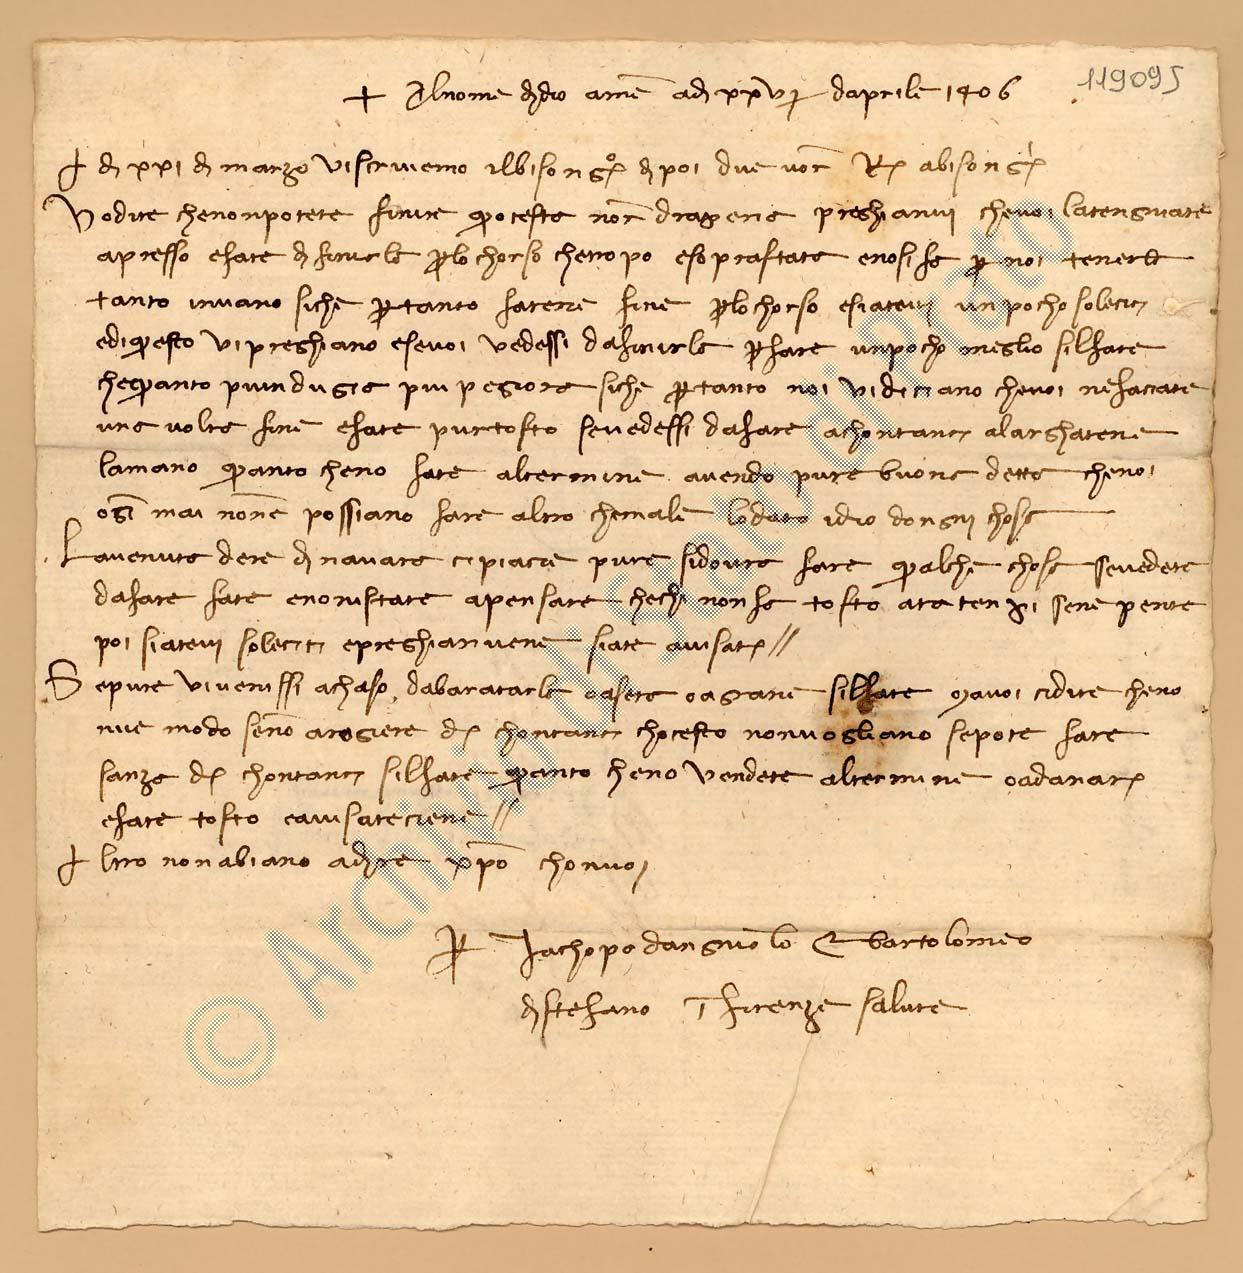 + Al nome di dio ame adi xxvj daprile 1406
119095
A di xxi di marzo vi scrivemo il bisongo di poi due vostre R abisongi
Vodite che non potete finire questa nostra drageria preghianvi che voi la tengniate
apresso e fate di finirla per lo chorso che tropo e soprastata e no si fa per noi tenerla
tanto invano siche per tanto fatene fine per lo chorso e siatevi un pocho soleciti
e di questo vi preghiano e se voi vedessi dafinirla per fare un pocho meglio sil fate
che quanto piu indugia piu pegiora siche per tanto noi vi diciano che voi ne facciate
una volta fine e fate pur tosto se vedessi dafare achontanti alarghatene
la mano quanto che no fate altermine avendo pure buona detta che noi
ogi mai none possiano fare altro che male lodato idio dongni chosa
La venuta dere di navara ci piace pure si dovra fare qualche chosa se vedete
dafare fate e no ristate apensare che chi non fa tosto ata tenpi sene pente
poi siatevi soleciti e preghianvene siate avisati //
Se pure vi venissi achaso dabaratarla o a seta o a grane sil fate ma voi ci dite che no
nve modo seno arogiere di chontanti chotesto non vogliano se pote fare
sanza di chontanti sil fate quanto che no vendete altermine o a danari
e fate tosto e avisateciene //
Altro non abiano adire xpo chon voi
Per Jachopo dangniolo e bartolomeo
di stefano I firenze salute
© Archivio di Stato di Prato